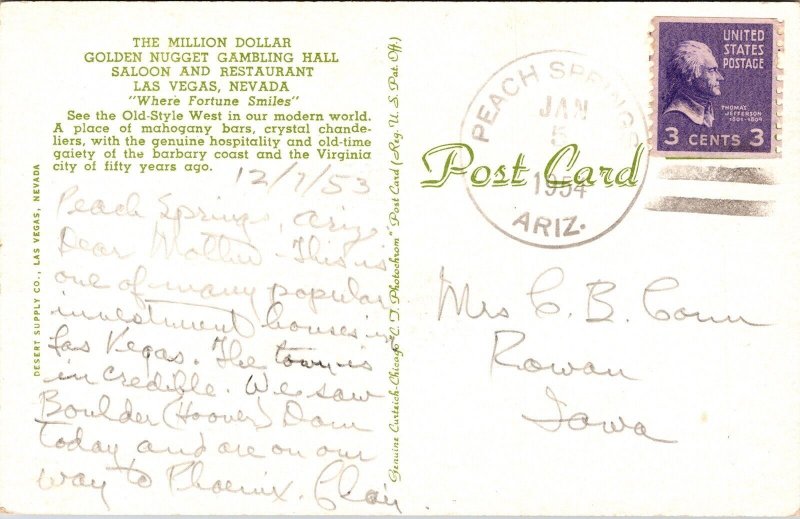 THE MILLION DOLLAR
GOLDEN NUGGET GAMBLING HALL
SALOON AND RESTAURANT
LAS VEGAS, NEVADA
"Where Fortune Smiles"
See the Old-Style West in our modern world.
A place of mahogany bars, crystal chande-
liers, with the genuine hospitality and old-time
gaiety of the barbary coast and the Virginia
city of fifty years ago.
12/7/53
Peach Springs, Ariz
Dear Mother - This is
one of many popular
investment houses in
Las Vegas. The town is
incredible. We saw
Boulder (Hoover) Dam
today and are on our
way to Phoenix. Clair
DESERT SUPPLY CO., LAS VEGAS, NEVADA
Genuine Curteich-Chicago "C. T. Photochrom" Post Card (Reg. U. S. Pat. Off.)
Post Card
PEACH SPRINGS
JAN
5
1954
ARIZ.
UNITED
STATES
POSTAGE
THOMAS
JEFFERSON
1801-1809
3 CENTS 3
Mrs C. B. Conn
Rowan
Iowa